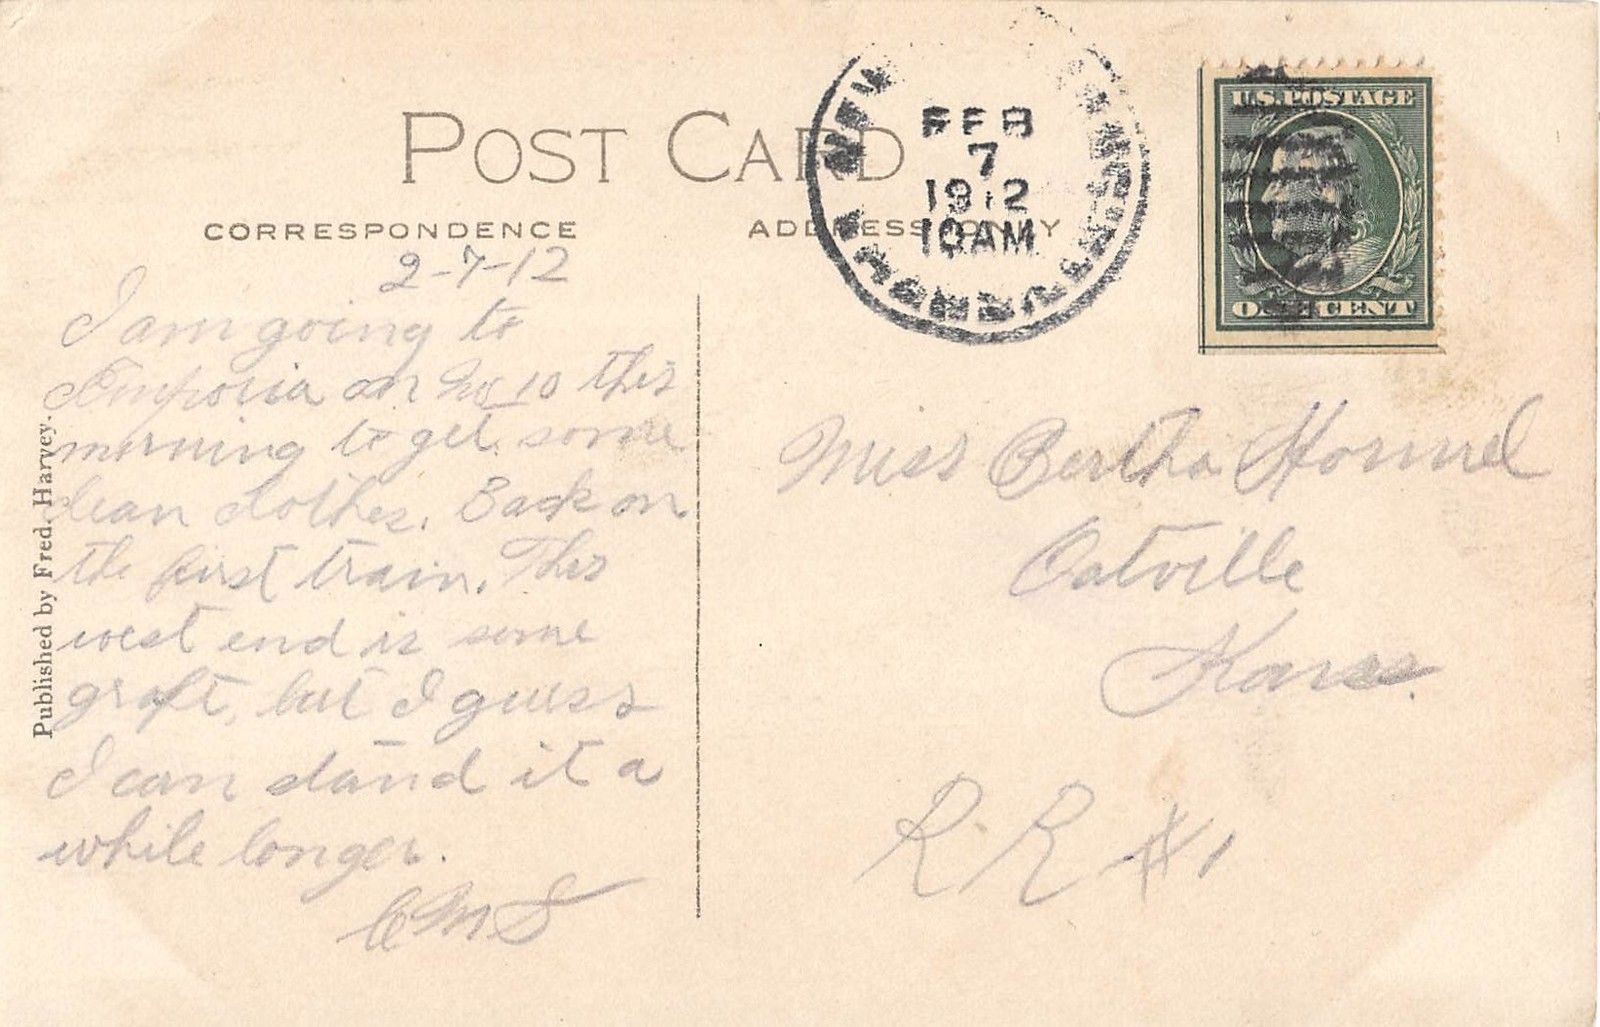 POST CARD
CORRESPONDENCE
ADDRESS ONLY
FEB
7
1912
10AM
U.S. POSTAGE
ONE CENT
2-7-12
I am going to
Emporia on No 10 this
morning to get some
clean clothes. Back on
the first train. This
west end is some
graft, but I guess
I can stand it a
while longer.
Miss Bertha Hommel
Oatville
Kans.
R.R #1
Published by Fred. Harvey.